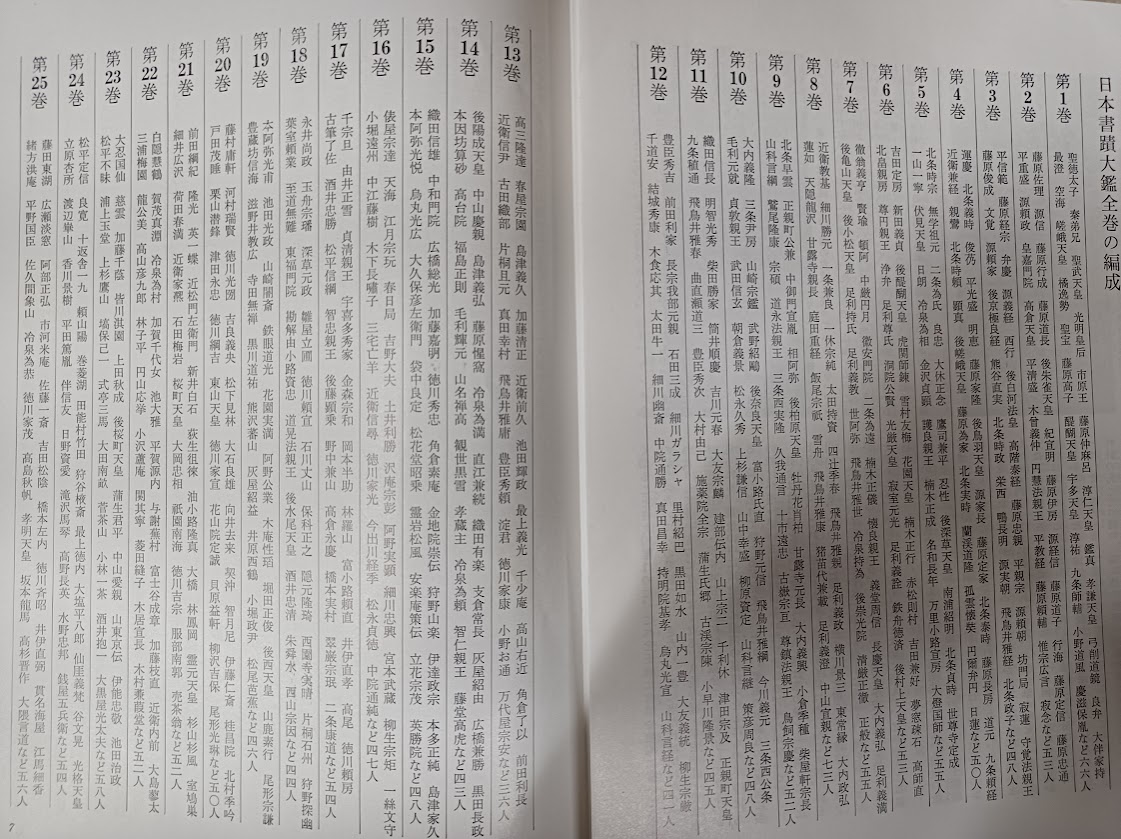 日本書蹟大鑑全巻の編成
第1巻
聖徳太子 秦弟兄 聖武天皇 光明皇后 市原王 藤原仲麻呂 淳仁天皇 鑑真 孝謙天皇 弓削道鏡 良弁 大伴家持
最澄 空海 嵯峨天皇 橘逸勢 聖宝 藤原高子 醍醐天皇 宇多天皇 淳祐 九条師輔 小野道風 慶滋保胤など五六人
第2巻
藤原佐理 源信 藤原行成 藤原道長 後朱雀天皇 紀宜明 藤原伊房 源経信 藤原道子 行海 藤原定信 藤原忠通
平重盛 源頼政 皇嘉門院 高倉天皇 平清盛 木曾義仲 円慧法親王 平教経 藤原頼輔 惟宗広言 寂念など五三人
第3巻
平信範 藤原経宗 弁慶 源義経 西行 後白河法皇 高階泰経 藤原忠親 平親宗 源頼朝 坊門局 寂蓮 守覚法親王
藤原俊成 文覚 源頼家 後京極良経 熊谷直実 北条時政 栄西 鴨長明 源実朝 飛鳥井雅経 北条政子など六六人
第4巻
運慶 北条義時 俊芿 平光盛 明恵 藤原家隆 後鳥羽天皇 源家長 藤原定家 北条泰時 藤原長房 道元 九条頼経
近衛兼経 親鸞 北条時頼 顕真 後嵯峨天皇 藤原為家 北条実時 蘭渓道隆 孤雲懐奘 円爾弁円 日蓮など六七人
第5巻
北条時宗 無学祖元 二条為氏 良忠 大休正念 鷹司兼平 忍性 後深草天皇 南浦紹明 北条貞時 世尊寺定成
一山一寧 伏見天皇 日朗 冷泉為相 金沢貞顕 護良親王 楠木正成 名和長年 万里小路宣房 大燈国師など五五人
第6巻
吉田定房 新田義貞 後醍醐天皇 虎関師錬 雪村友梅 花園天皇 楠木正行 赤松則村 吉田兼好 夢窓疎石 高師直
北畠親房 尊円親王 浄弁 足利尊氏 洞院公賢 光厳天皇 足利義詮 鉄舟徳済 後村上天皇など五三人
第7巻
徹翁義亨 賢瑜 頓阿 中巌円月 徽安門院 二条為遠 楠木正儀 懐良親王 義堂周信 長慶天皇 大内義弘 足利義満
後亀山天皇 後小松天皇 足利持氏 義教 世阿弥 飛鳥井雅世 寂室元光 冷泉持為 後崇光院 清厳正徹 正般など五七人
第8巻
近衛教基 細川勝元 一条兼良 一休宗純 太田持資 四辻季春 飛鳥井雅親 足利義政 横川景三 東常縁 大内政弘
蓮如 天隠龍沢 甘露寺親長 庭田重経 飯尾宗祇 雪舟 飛鳥井雅康 猪苗代兼載 足利義澄 中山宣親など七三人
第9巻
北条早雲 正親町公兼 中御門宣胤 相阿弥 後柏原天皇 牡丹花肖柏 甘露寺元長 小倉季種 柴屋軒宗長
山科言綱 鷲尾隆康 宗碩 道永法親王 三条西実隆 久我通言 十市遠忠 古嶽宗亘 尊鎮法親王 鳥飼宗慶など五二人
第10巻
大内義隆 三条尹房 山崎宗鑑 武野紹鷗 後奈良天皇 大内義興 富小路氏直 狩野元信 今川義元 三条西公条
毛利元就 貞敦親王 武田信玄 朝倉義景 松永久秀 上杉謙信 山中幸盛 柳原資定 山科言継 策彦周良など四二人
第11巻
織田信長 明智光秀 柴田勝家 筒井順慶 吉川元春 大友宗麟 建部伝内 山上宗二 千利休 津田宗及 正親町天皇
九条稙通 曲直瀬道三 豊臣秀次 大村由己 施薬院全宗 蒲生氏郷 古渓宗陳 小早川隆景など四七人
第12巻
豊臣秀吉 前田利家 長宗我部元親 石田三成 細川ガラシャ 里村紹巴 黒田如水 山内一豊 大友義統 柳生宗厳
千道安 結城秀康 木食応其 太田牛一 細川幽斎 中院通勝 真田昌幸 持明院基孝 烏丸光宣 山科言経など四一人
第13巻
高三隆達 春屋宗園 島津義久 加藤清正 近衛前久 池田輝政 最上義光 千少庵 高山右近 角倉了以 前田利長
近衛信尹 古田織部 片桐且元 真田幸村 飛鳥井雅庸 豊臣秀頼 淀君 徳川家康 小野お通 万代屋宗安など三六人
第14巻
後陽成天皇 中山慶親 島津義弘 藤原惺窩 冷泉為満 直江兼続 織田有楽 支倉常長 灰屋紹由 広橋兼勝 黒田長政
本因坊算砂 高台院 福島正則 毛利輝元 山名禅高 観世黒雪 孝蔵主 冷泉為頼 智仁親王 藤堂高虎など四三人
第15巻
織田信雄 中和門院 広橋総光 加藤嘉明 徳川秀忠 角倉素庵 金地院崇伝 狩野山楽 伊達政宗 本多正純 島津家久
本阿弥光悦 烏丸光広 大久保彦左衛門 袋中良定 松花堂昭乗 霊岩松風 安楽庵策伝 立花宗茂 英勝院など四八人
第16巻
俵屋宗達 天海 江月宗玩 春日局 吉野大夫 土井利勝 沢庵宗彭 阿野実顕 細川忠興 宮本武蔵 柳生宗矩 一絲文守
小堀遠州 中江藤樹 木下長嘯子 三宅亡羊 近衛信尋 徳川家光 今出川経季 松永貞徳 中院通純など四七人
第17巻
千宗旦 由井正雪 貞清親王 宇喜多秀家 金森宗和 岡本半助 林羅山 富小路頼直 井伊直孝 高尾 徳川頼房
古筆了佐 酒井忠勝 松平信綱 智忠親王 後藤顕乗 野中兼山 高倉永慶 橋本実村 翠巌宗珉 二条康道など五四人
第18巻
永井尚政 玉舟宗璠 深草元政 雛屋立圃 徳川頼宣 石川丈山 保科正之 隠元隆琦 西園寺実晴 片桐石州 狩野探幽
葉室頼業 至道無難 東福門院 勘解由小路資忠 道晃法親王 後水尾天皇 酒井忠清 朱舜水 西山宗因など四四人
第19巻
本阿弥光甫 池田光政 山崎闇斎 鉄眼道光 花園実満 阿野公業 木庵性瑫 堀田正俊 後西天皇 山鹿素行 尾形宗謙
豊蔵坊信海 滋野井教広 寺田無禅 黒川道祐 熊沢蕃山 灰屋紹益 井原西鶴 小堀政尹 松尾芭蕉など四六人
第20巻
藤村庸軒 河村瑞賢 徳川光圀 吉良義央 松下見林 大石良雄 向井去来 契沖 智月尼 伊藤仁斎 桂昌院 北村季吟
戸田茂睡 栗山潜鋒 津田永忠 徳川綱吉 東山天皇 徳川家宣 花山院定誠 貝原益軒 柳沢吉保 尾形光琳など五〇人
第21巻
前田綱紀 隆光 英一蝶 近松門左衛門 新井白石 荻生徂徠 池小路隆真 大橋 林鳳岡 霊元天皇 杉山杉風 室鳩巣
細井広沢 荷田春満 近衛家熈 石田梅岩 桜町天皇 大岡忠相 祇園南海 徳川吉宗 服部南郭 売茶翁など五二人
第22巻
白隠慧鶴 賀茂真淵 冷泉為村 加賀千代女 池大雅 平賀源内 与謝蕪村 富士谷成章 加藤枝直 近衛内前 大島蓼太
三浦梅園 龍公美 高山彦九郎 林子平 円山応挙 小沢蘆庵 関其寧 菱田縫子 木居宣長 木村蒹葭など五二人
第23巻
大忍国仙 慈雲 加藤千蔭 皆川淇園 上田秋成 後桜町天皇 蒲生君平 中山愛親 山東京伝 伊能忠敬 池田治政
松平不昧 浦上玉堂 上杉鷹山 塙保己一 式亭三馬 大田南畝 菅茶山 小林一茶 酒井抱一 大黒屋光太夫など五八人
第24巻
松平定信 良寛 十返舎一九 頼山陽 巻菱湖 田能村竹田 狩谷棭斎 最上徳内 大塩平八郎 仙厓義梵 谷文晁 光格天皇
立原杏所 渡辺崋山 香川景樹 平田篤胤 伴信友 日野資愛 滝沢馬琴 高野長英 水野忠邦 銭屋五兵衛など五四人
第25巻
藤田東湖 広瀬淡窓 阿部正弘 市河米庵 佐藤一斎 吉田松陰 橋本左内 徳川斉昭 井伊直弼 貫名海屋 江馬細香
緒方洪庵 平野国臣 佐久間象山 冷泉為恭 徳川家茂 高島秋帆 孝明天皇 坂本龍馬 高杉晋作 大隈言道など五六人
7